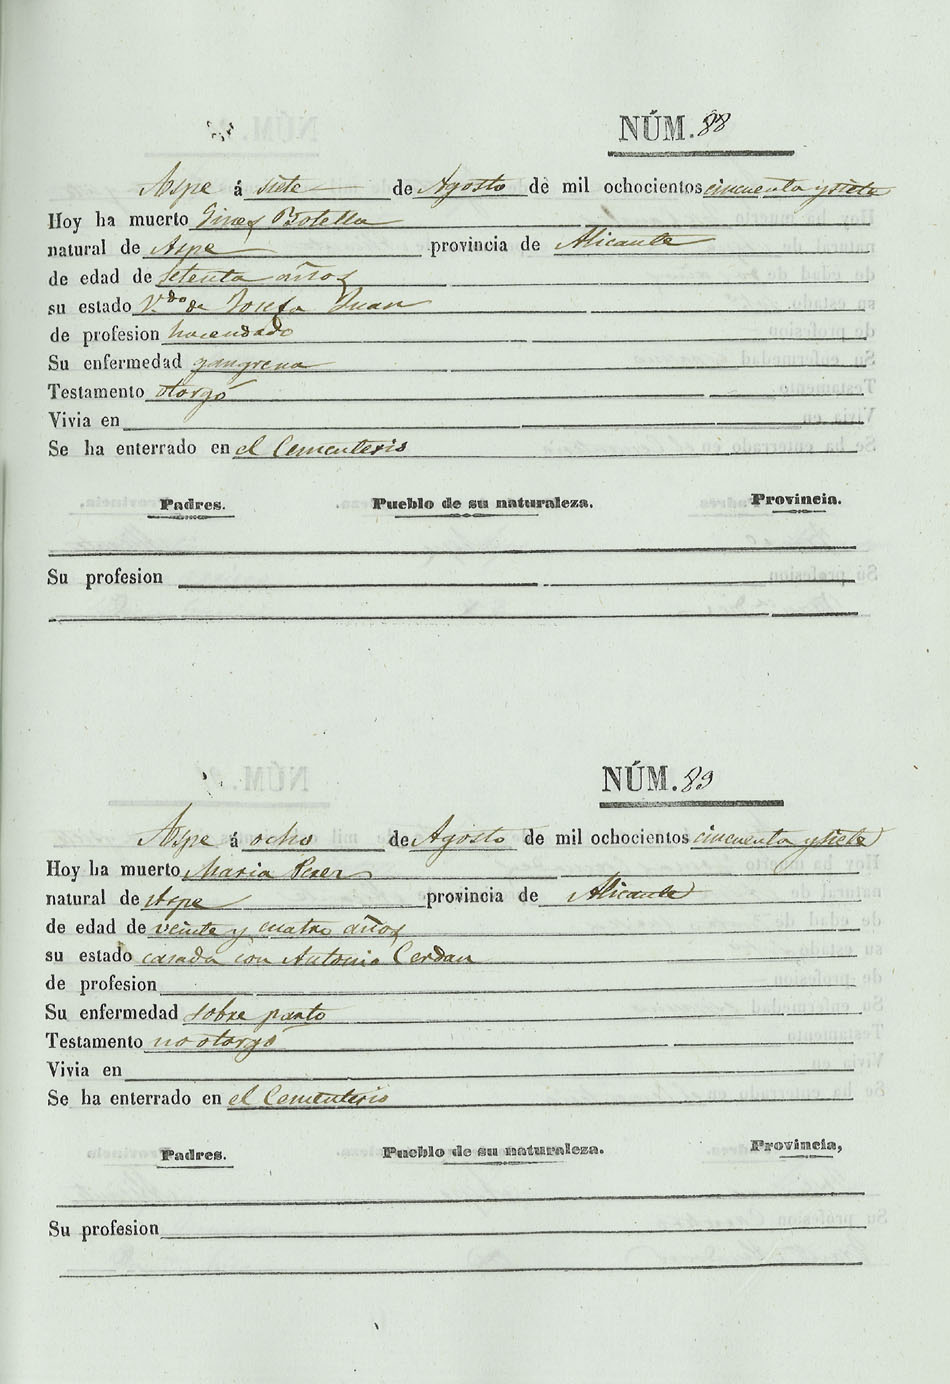 NÚM. 88
Aspe á siete de Agosto de mil ochocientos cincuenta y siete
Hoy ha muerto Gines Botella
natural de Aspe provincia de Alicante
de edad de setenta años
su estado V.do de Josefa Juan
de profesion hacendado
Su enfermedad gangrena
Testamento otorgó
Vivia en
Se ha enterrado en el Cementerio
Padres. Pueblo de su naturaleza. Provincia.
Su profesion
NÚM. 89
Aspe á ocho de Agosto de mil ochocientos cincuenta y siete
Hoy ha muerto Maria Perez
natural de Aspe provincia de Alicante
de edad de veinte y cuatro años
su estado casada con Antonio Cerdan
de profesion
Su enfermedad sobre parto
Testamento no otorgó
Vivia en
Se ha enterrado en el Cementerio
Padres. Pueblo de su naturaleza. Provincia,
Su profesion